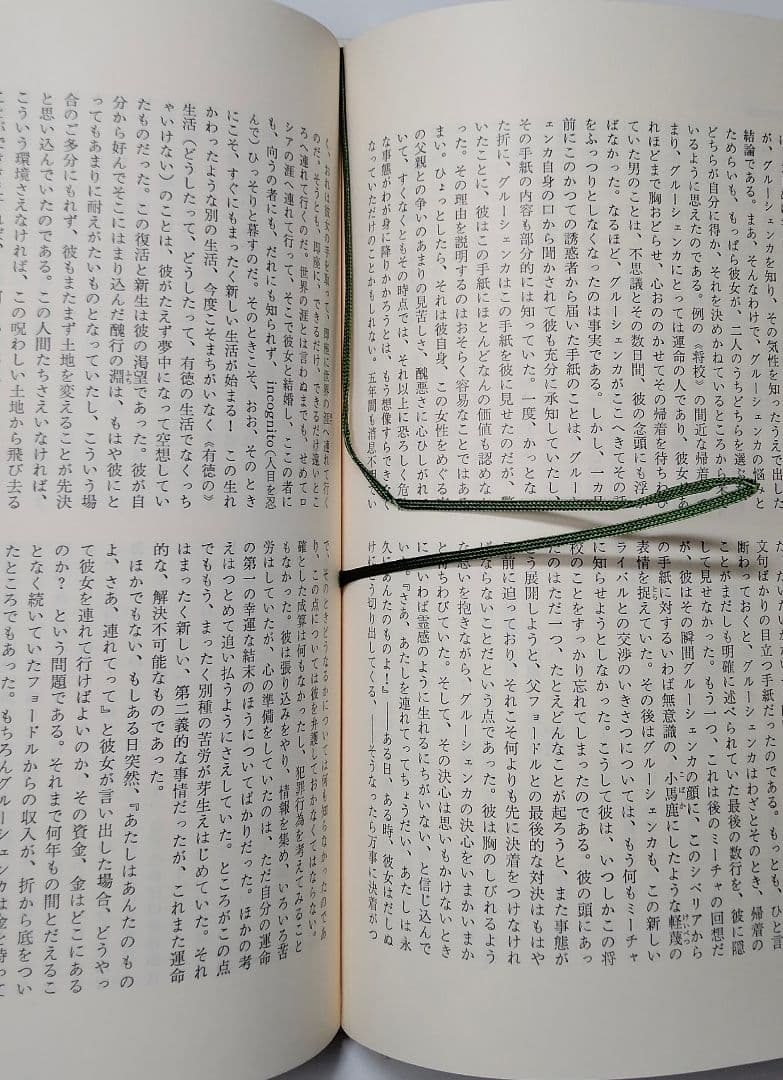 グルーシェンカを知り、その気性を知ったうえで出した
結論である。まあ、そんなわけで、グルーシェンカの悩みと
ためらいも、もっぱら彼女が、二人のうちどちらを選ぶ
どちらが自分に得か、それを決めかねているところからきて
いるように思えたのである。例の《将校》の間近な帰着
まり、グルーシェンカにとっては運命の人であり、彼女が
れほどまで胸おどらせ、心おののかせてその帰着を待ちわび
ていた男のことは、不思議とその数日間、彼の念頭にも浮か
ばなかった。なるほど、グルーシェンカがここへきてその話
をふっつりとしなくなったのは事実である。しかし、一カ月
前にこのかつての誘惑者から届いた手紙のことは、グルーシ
ェンカ自身の口から聞かされて彼も充分に承知していたし、
その手紙の内容も部分的には知っていた。一度、かっとな
た折に、グルーシェンカはこの手紙を彼に見せたのだが、
いたことに、彼はこの手紙にほとんどなんの価値も認めな
った。その理由を説明するのはおそらく容易なことではある
まい。ひょっとしたら、それは彼自身、この女性をめぐる
の父親との争いのあまりの見苦しさ、醜悪さに心ひしがれ
いて、すくなくともその時点では、それ以上に恐ろしく危
な事態がわが身に降りかかろうとは、もう想像すらできなく
なっていただけのことかもしれない。五年間も消息不明でい
文句ばかりの目立つ手紙だったのである。もっとも、ひと言
断わっておくと、グルーシェンカはわざとそのとき、帰着の
ことがまだしも明確に述べられていた最後の数行を、彼に隠
して見せなかった。もう一つ、これは後のミーチャの回想だ
が、彼はその瞬間グルーシェンカの顔に、このシベリアから
の手紙に対するいわば無意識の、小馬鹿にしたような軽蔑の
表情を捉えていた。その後はグルーシェンカも、この新しい
ライバルとの交渉のいきさつについては、もう何もミーチャ
に知らせようとしなかった。こうして彼は、いつしかこの将
校のことをすっかり忘れてしまったのである。彼の頭にあっ
たのはただ一つ、たとえどんなことが起ろうと、また事態が
どう展開しようと、父フョードルとの最後的な対決はもはや
目前に迫っており、それこそ何よりも先に決着をつけなけれ
ばならないことだという点であった。彼は胸のしびれるよう
な思いを抱きながら、グルーシェンカの決心をいまかいまか
と待ちわびていた。そして、その決心は思いもかけないとき
に、いわば霊感のように生れるにちがいない、と信じ込んで
いた。『さあ、あたしを連れてってちょうだい、あたしは永
久にあんたのものよ！』――ある日、ある時、彼女はだしぬ
けにこう切り出してくる、――そうなったら万事に決着がつ
く、おれは彼女の手を取って、即座に世界の涯へ連れて行く
のだ。そうとも、即座に、できるだけ、できるだけ遠いとこ
ろへ連れて行くのだ。世界の涯とは言わぬまでも、せめてロ
シアの涯へ連れて行って、そこで彼女と結婚し、ここの者に
も、向うの者にも、だれにも知られず、incognito（人目を忍
んで）ひっそりと暮すのだ。そのときこそ、おお、そのとき
にこそ、すぐにもまったく新しい生活が始まる！　この生れ
かわったような別の生活、今度こそまちがいなく《有徳の》
生活（どうしたって、どうしたって、有徳の生活でなくっち
ゃいけない）のことは、彼がたえず夢中になって空想してい
たものだった。この復活と新生は彼の渇望であった。彼が自
分から好んでそこにはまり込んだ醜行の淵は、もはや彼にと
ってもあまりに耐えがたいものとなっていたし、こういう場
合のご多分にもれず、彼もまたまず土地を変えることが先決
と思い込んでいたのである。この人間たちさえいなければ、
こういう環境さえなければ、この呪わしい土地から飛び去る
で、そのときどうなるかについては何も知らなかったのであ
り、この点については彼を弁護しておかなくてはならない。
確とした成算は何もなかったし、犯罪行為を考えてみること
もなかった。彼は張り込みをやり、情報を集め、いろいろ苦
労はしていたが、心の準備をしていたのは、ただ自分の運命
の第一の幸運な結末のほうについてばかりだった。ほかの考
えはつとめて追い払うようにさえしていた。ところがこの点
でももう、まったく別種の苦労が芽生えはじめていた。それ
はまったく新しい、第二義的な事情だったが、これまた運命
的な、解決不可能なものであった。
ほかでもない、もしある日突然、『あたしはあんたのもの
よ、さあ、連れてって』と彼女が言い出した場合、どうやっ
て彼女を連れて行けばよいのか、その資金、金はどこにある
のか？　という問題である。それまで何年もの間とだえるこ
となく続いていたフョードルからの収入が、折から底をつい
たところでもあった。もちろんグルーシェンカは金を持って